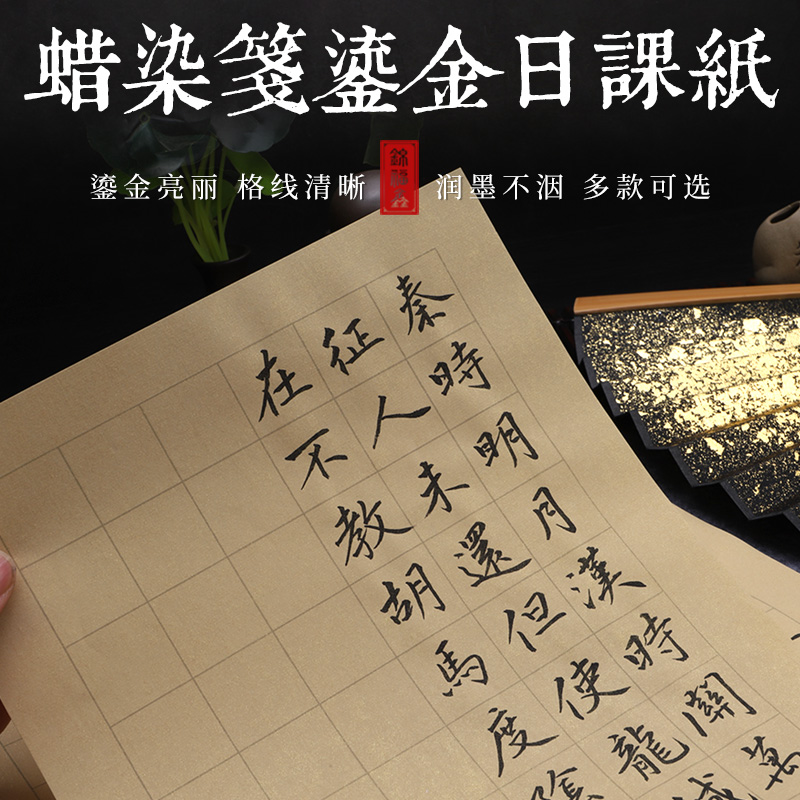 蜡染箋鎏金日課紙
鎏金亮丽 格线清晰
錦
润墨不洇 多款可选
秦時明月漢時關萬
征人未還但使龍城
在不教胡馬度陰